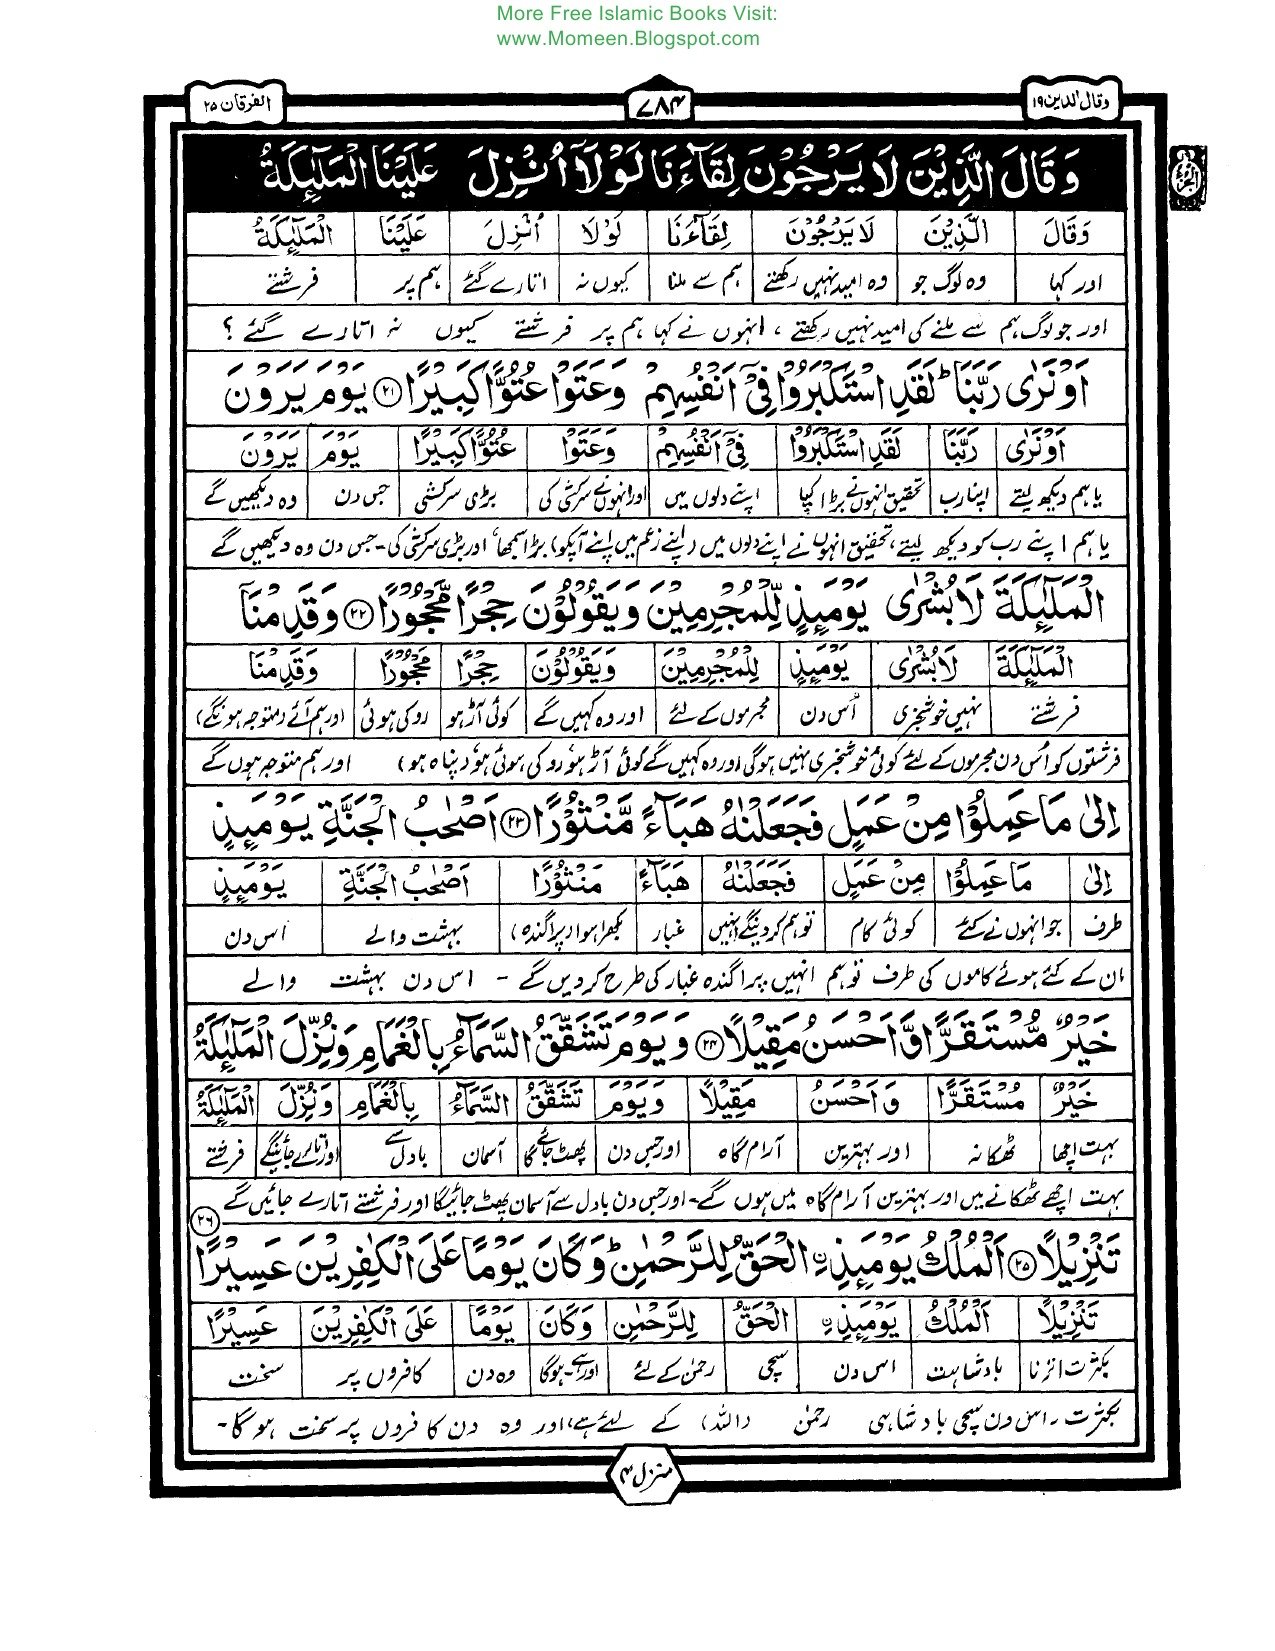 More Free Islamic Books Visit:
www.Momeen.Blogspot.com
وقال الذین ۱۹
۷۸۴
الفرقان ۲۵
وَقَالَ الَّذِيْنَ لَا يَرْجُوْنَ لِقَآءَنَا لَوْلَآ اُنْزِلَ عَلَيْنَا الْمَلٰٓئِكَةُ
وَقَالَ الَّذِيْنَ لَا يَرْجُوْنَ لِقَآءَنَا لَوْلَا اُنْزِلَ عَلَيْنَا الْمَلٰٓئِكَةُ
اور کہا وہ لوگ جو وہ امید نہیں رکھتے ہم سے ملنا کیوں نہ اتارے گئے ہم پر فرشتے
اور جو لوگ ہم سے ملنے کی امید نہیں رکھتے ، انہوں نے کہا ہم پر فرشتے کیوں نہ اتارے گئے ؟
اَوْ نَرٰى رَبَّنَا ؕ لَقَدِ اسْتَكْبَرُوْا فِيْٓ اَنْفُسِهِمْ وَعَتَوْا عُتُوًّا كَبِيْرًا ۲۱ يَوْمَ يَرَوْنَ
اَوْ نَرٰى رَبَّنَا لَقَدِ اسْتَكْبَرُوْا فِيْٓ اَنْفُسِهِمْ وَعَتَوْا عُتُوًّا كَبِيْرًا يَوْمَ يَرَوْنَ
یا ہم دیکھ لیتے اپنا رب تحقیق انہوں نے بڑا کیا اپنے دلوں میں اور انہوں نے سرکشی کی بڑی سرکشی جس دن وہ دیکھیں گے
یا ہم اپنے رب کو دیکھ لیتے، تحقیق انہوں نے اپنے دلوں میں (اپنے زعم میں اپنے آپکو) بڑا سمجھا، اور بڑی سرکشی کی۔ جس دن وہ دیکھیں گے
الْمَلٰٓئِكَةَ لَا بُشْرٰى يَوْمَئِذٍ لِّلْمُجْرِمِيْنَ وَيَقُوْلُوْنَ حِجْرًا مَّحْجُوْرًا ۲۲ وَقَدِمْنَآ
الْمَلٰٓئِكَةَ لَا بُشْرٰى يَوْمَئِذٍ لِلْمُجْرِمِيْنَ وَيَقُوْلُوْنَ حِجْرًا مَّحْجُوْرًا وَقَدِمْنَا
فرشتے نہیں خوشخبری اُس دن مجرموں کے لئے اور وہ کہیں گے کوئی آڑ ہو روکی ہوئی اور ہم آئے (متوجہ ہونگے)
فرشتوں کو اُس دن مجرموں کے لئے کوئی خوشخبری نہیں ہوگی اور وہ کہیں گے کوئی آڑ ہو، روکی ہوئی ہو (پناہ ہو) اور ہم متوجہ ہوں گے
اِلٰى مَا عَمِلُوْا مِنْ عَمَلٍ فَجَعَلْنٰهُ هَبَآءً مَّنْثُوْرًا ۲۳ اَصْحٰبُ الْجَنَّةِ يَوْمَئِذٍ
اِلٰى مَا عَمِلُوْا مِنْ عَمَلٍ فَجَعَلْنٰهُ هَبَآءً مَنْثُوْرًا اَصْحٰبُ الْجَنَّةِ يَوْمَئِذٍ
طرف جو انہوں نے کئے کوئی کام تو ہم کر دینگے انہیں غبار بکھرا ہوا (پراگندہ) بہشت والے اُس دن
ان کے کئے ہوئے کاموں کی طرف تو ہم انہیں پراگندہ غبار کی طرح کر دیں گے ۔ اس دن بہشت والے
خَيْرٌ مُّسْتَقَرًّا وَّاَحْسَنُ مَقِيْلًا ۲۴ وَيَوْمَ تَشَقَّقُ السَّمَآءُ بِالْغَمَامِ وَنُزِّلَ الْمَلٰٓئِكَةُ
خَيْرٌ مُسْتَقَرًّا وَاَحْسَنُ مَقِيْلًا وَيَوْمَ تَشَقَّقُ السَّمَآءُ بِالْغَمَامِ وَنُزِّلَ الْمَلٰٓئِكَةُ
بہت اچھا ٹھکانہ اور بہترین آرام گاہ اور جس دن پھٹ جائے گا آسمان بادل سے اور اتارے جائینگے فرشتے
بہت اچھے ٹھکانے میں اور بہترین آرام گاہ میں ہوں گے۔ اور جس دن بادل سے آسمان پھٹ جائیگا اور فرشتے اتارے جائیں گے
۲۶
تَنْزِيْلًا ۲۵ اَلْمُلْكُ يَوْمَئِذِ ۨالْحَقُّ لِلرَّحْمٰنِ ؕ وَكَانَ يَوْمًا عَلَى الْكٰفِرِيْنَ عَسِيْرًا
تَنْزِيْلًا اَلْمُلْكُ يَوْمَئِذِ ۨ الْحَقُّ لِلرَّحْمٰنِ وَكَانَ يَوْمًا عَلَى الْكٰفِرِيْنَ عَسِيْرًا
بکثرت اترنا بادشاہت اس دن سچی رحمٰن کے لئے اور ہے۔ہوگا وہ دن کافروں پر سخت
بکثرت ۔ اس دن سچی بادشاہی رحمٰن (اللہ) کے لئے ہے، اور وہ دن کافروں پر سخت ہوگا۔
منزل ۴